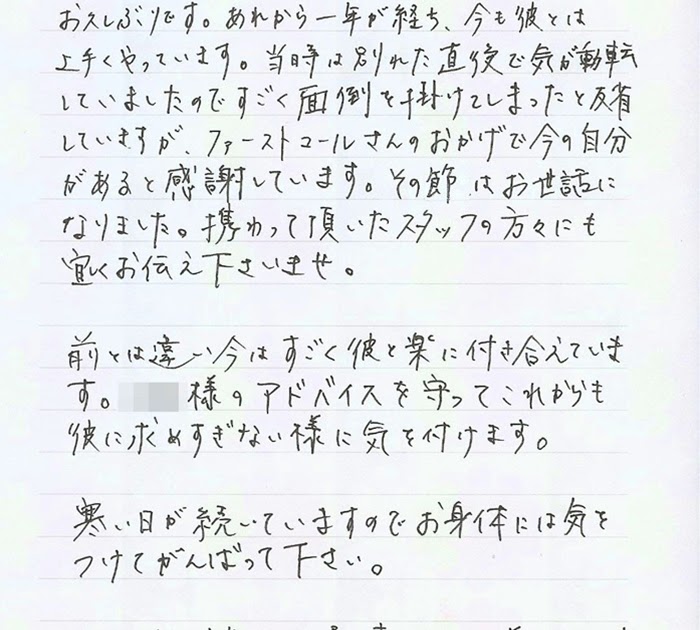 お久しぶりです。あれから一年が経ち、今も彼とは
上手くやっています。当時は別れた直後で気が動転
していましたのですごく面倒を掛けてしまったと反省
していますが、ファーストコールさんのおかげで今の自分
があると感謝しています。その節はお世話に
なりました。携わって頂いたスタッフの方々にも
宜しくお伝え下さいませ。
前とは違い今はすごく彼と楽に付き合えていま
す。様のアドバイスを守ってこれからも
彼に求めすぎない様に気を付けます。
寒い日が続いていますのでお身体には気を
つけてがんばって下さい。